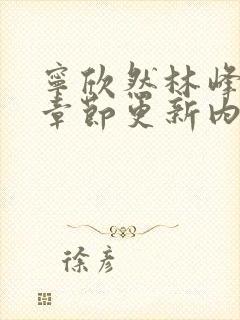 寧欣然林峰
章節更新內
徐彥